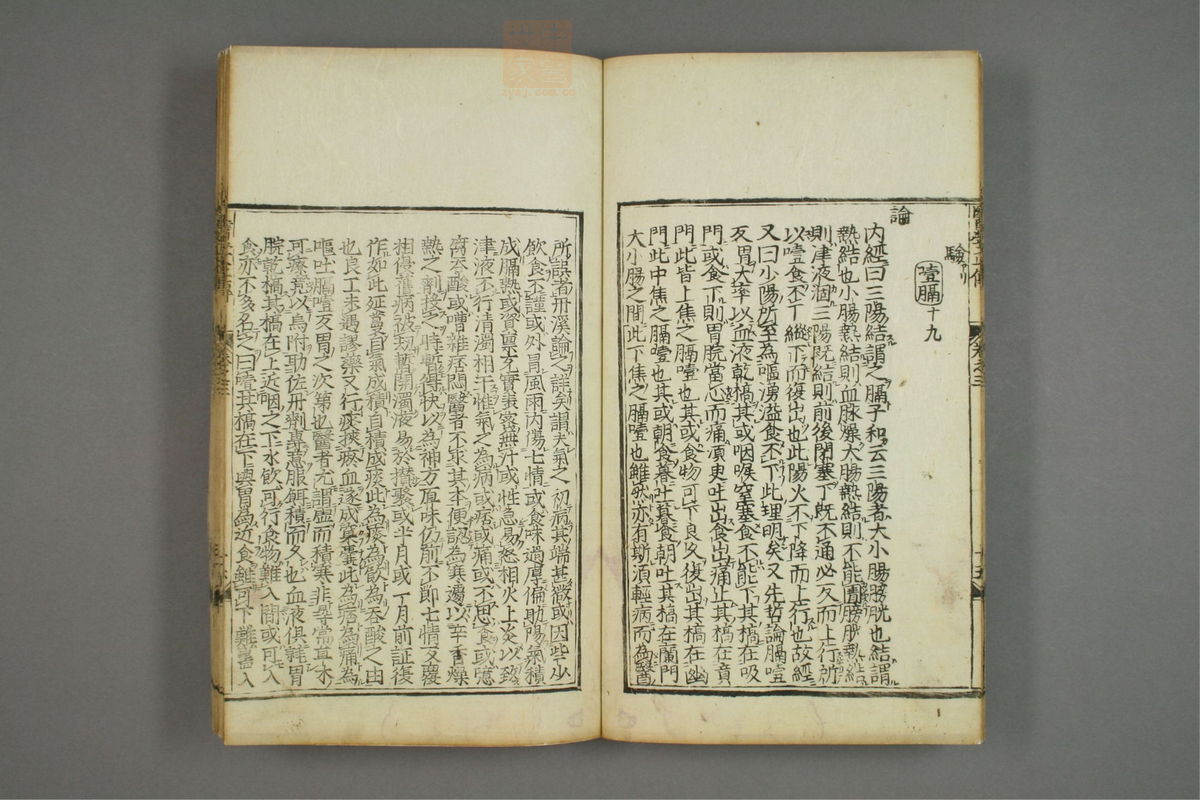 驗
噎膈十九
論
内經曰三陽結謂之膈子和云三陽者大小腸膀胱也結謂
熱結也小腸熱結則血脉燥大腸熱結則不能圊膀胱熱結
則津液涸三陽既結則前後閉塞下既不通必反而上行所
以噎食不下縱下而復出也此陽火不下降而上行也故經
又曰少陽所至為嘔湧溢食不下此理明矣又先哲論膈噎
反胃大率以血液乾槁其或咽喉窒塞食不能下其槁在吸
門或食下則胃脘當心而痛須臾吐出食出痛止其槁在賁
門此皆上焦之膈噎也其或食物可下良久復出其槁在幽
門此中焦之膈噎也其或朝食暮吐暮食朝吐其槁在闌門
大小腸之間此下焦之膈噎也雖然亦有斯須輕病而為醫
所誤者丹溪論之詳矣謂夫氣之初病其端甚微或因些少
飲食不謹或外冒風雨内傷七情或食味過厚偏助陽氣積
成膈熱或資稟充實表密無汗或性急易怒相火上炎以致
津液不行清濁相干惟氣之為病或痞或痛或不思食或噫
腐吞酸或嘈雜痞悶醫者不求其本便認為寒遽以辛香燥
熱之劑投之時暫得快以為神方厚味仍前不節七情反覆
相擾舊病被劫暫開濁液易於攢聚或半月或一月前証復
作如此延蔓自氣成積自積成痰此為痰為飲為吞酸之由
也良工未遇謬藥又行痰挾瘀血遂成窠囊此為痞為痛為
嘔吐膈噎反胃之次第也醫者尤謂虛而積寒非尋常草木
可療竟以烏附助佐丹劑專意服餌積而久也血液俱耗胃
脘乾槁其槁在上近咽之下水飲可行食物難入間或可入
食亦不多名之曰噎其槁在下與胃為近食雖可下難盡入